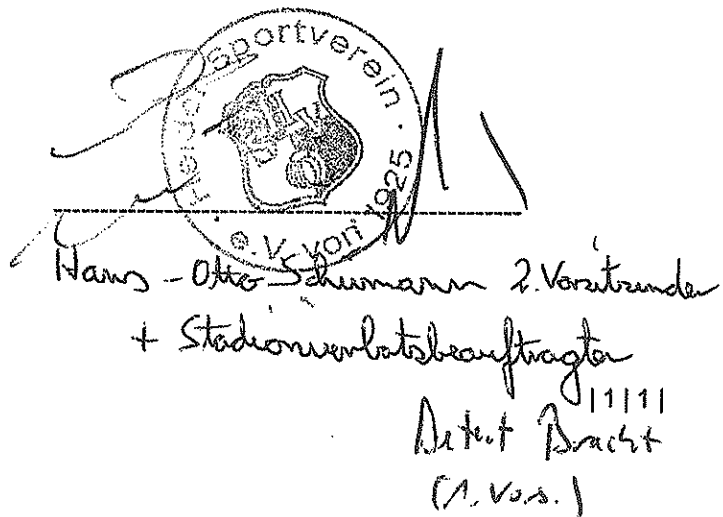 Heider Sportverein · e.V. von 1925 ·
HSV
Hans-Otto Schumann 2. Vorsitzender
+ Stadionverbotsbeauftragter
|1|11|
Bracht
(1. Vors.)